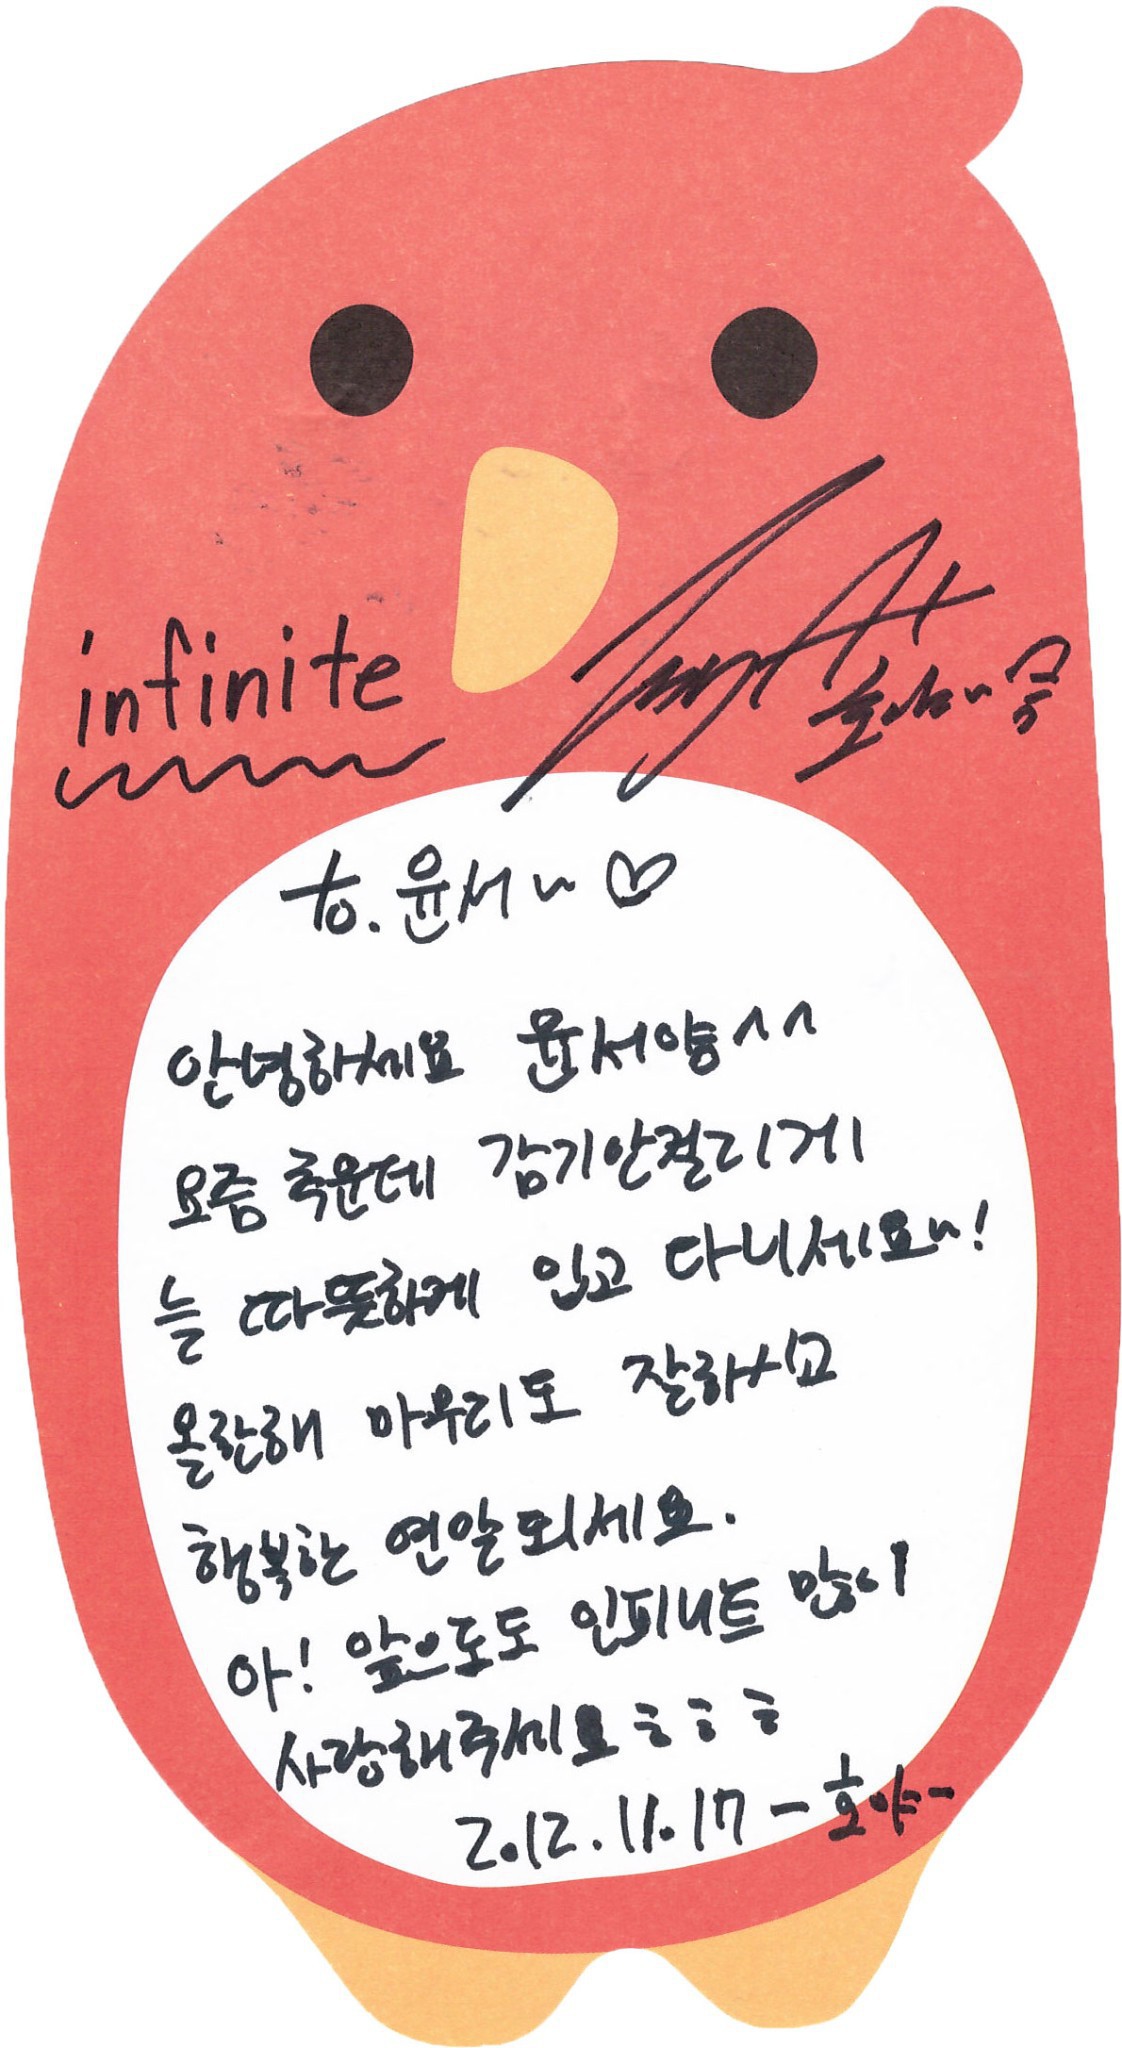 infinite
호야~
to. 윤서~ ♡
안녕하세요 윤서양^^
요즘 추운데 감기안걸리게
늘 따뜻하게 입고 다니세요~!
올한해 마무리도 잘하시고
행복한 연말되세요.
아! 앞으로도 인피니트 많이
사랑해주세요ㅎㅎㅎ
2012.11.17 -호야-